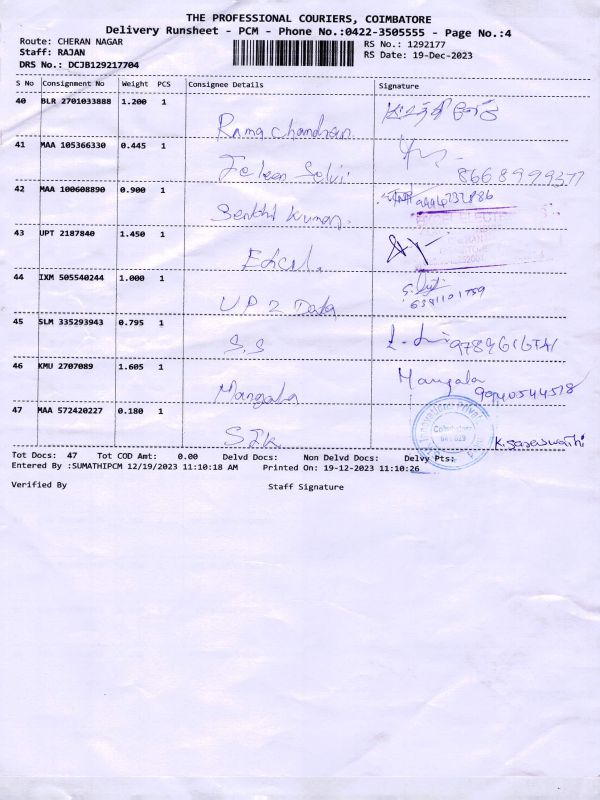 THE PROFESSIONAL COURIERS, COIMBATORE
Delivery Runsheet - PCM - Phone No.:0422-3505555 - Page No.:4
Route: CHERAN NAGAR RS No.: 1292177
Staff: RAJAN RS Date: 19-Dec-2023
DRS No.: DCJB129217704
S No Consignment No Weight PCS Consignee Details Signature
40 BLR 2701033888 1.200 1
Rama chandran
41 MAA 105366330 0.445 1
Selvi 8668999377
42 MAA 100608890 0.900 1
Senthil Kumar
43 UPT 2187840 1.450 1
44 IXM 505540244 1.000 1
UP 2 Data 6381101759
45 SLM 335293943 0.795 1
S.S
46 KMU 2707089 1.605 1 Mangala
Mangala
47 MAA 572420227 0.180 1
Coimbatore
K. Saraswathi
Tot Docs: 47 Tot COD Amt: 0.00 Delvd Docs: Non Delvd Docs: Delvy Pts:
Entered By :SUMATHIPCM 12/19/2023 11:10:18 AM Printed On: 19-12-2023 11:10:26
Verified By Staff Signature